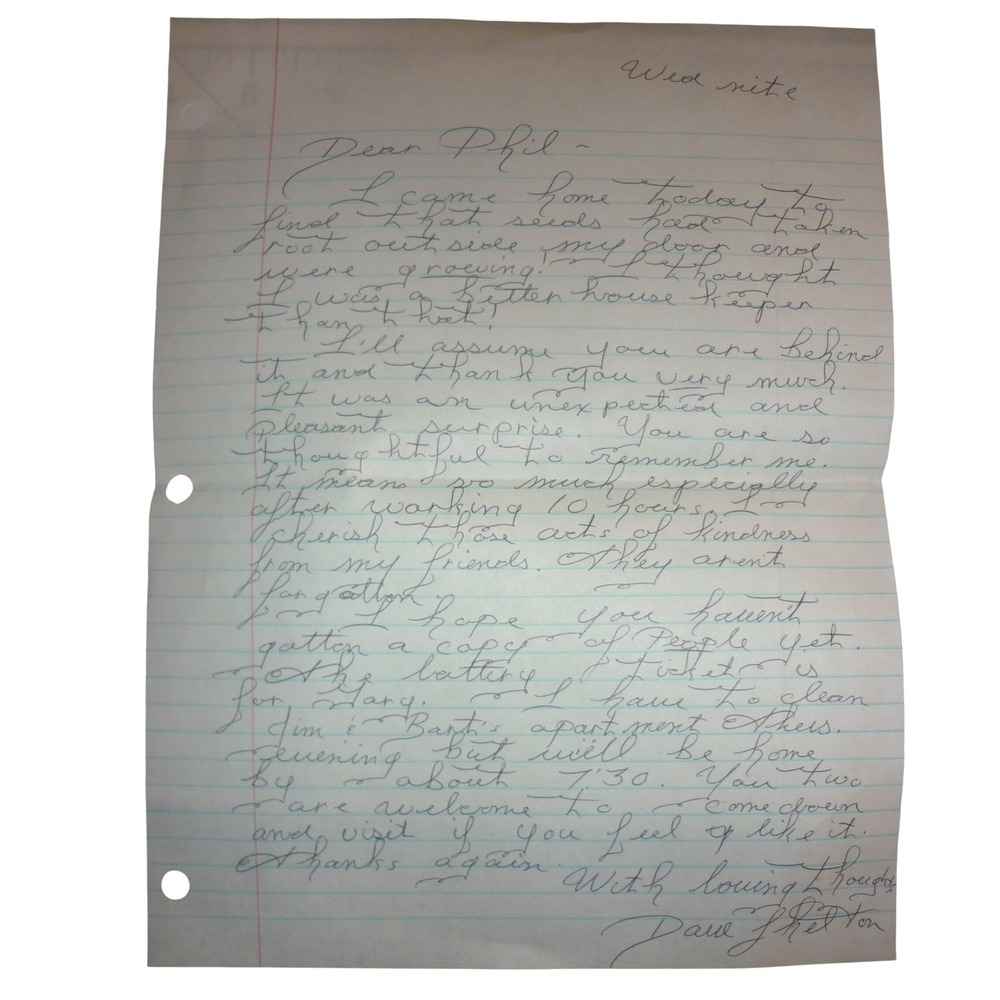 Wed nite
Dear Phil -
I came home today to
find that seeds had taken
root outside my door and
were growing! I thought
I was a better house keeper
than that!
I'll assume you are behind
it and thank you very much.
It was an unexpected and
pleasant surprise. You are so
thoughtful to remember me.
It means so much especially
after working 10 hours. I
cherish those acts of kindness
from my friends. They arent
forgotton.
I hope you haven't
gotton a copy of People yet.
The lottery ticket is
for Gary. I have to clean
Jim & Bart's apartment Thurs.
evening but will be home
by about 7:30. You two
are welcome to come down
and visit if you feel like it.
Thanks again.
With loving thoughts
Dave Shelton